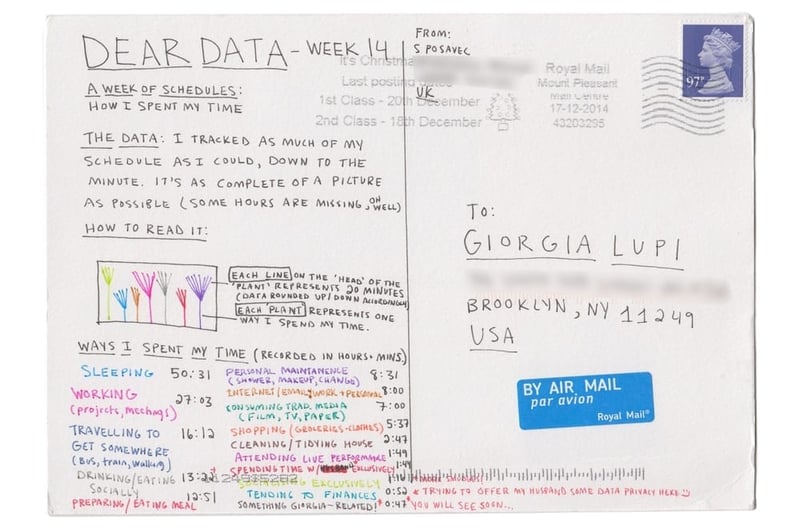 DEAR DATA - WEEK 14
A WEEK OF SCHEDULES:
HOW I SPENT MY TIME
THE DATA: I TRACKED AS MUCH OF MY
SCHEDULE AS I COULD, DOWN TO THE
MINUTE. IT'S AS COMPLETE OF A PICTURE
AS POSSIBLE (SOME HOURS ARE MISSING, OH WELL)
HOW TO READ IT:
EACH LINE ON THE 'HEAD' OF THE
'PLANT' REPRESENTS 20 MINUTES
(DATA ROUNDED UP/DOWN ACCORDINGLY)
EACH PLANT REPRESENTS ONE
WAY I SPEND MY TIME.
WAYS I SPENT MY TIME (RECORDED IN HOURS + MINS.)
SLEEPING 50:31
WORKING 27:03
(projects, meetings)
TRAVELLING TO 16:12
GET SOMEWHERE
(BUS, train, walking)
DRINKING/EATING 13:22
SOCIALLY
PREPARING/EATING MEAL 12:51
PERSONAL MAINTANENCE 8:31
(SHOWER, MAKEUP, CHANGE)
INTERNET/EMAIL/WORK + PERSONAL 8:00
CONSUMING TRAD. MEDIA 7:00
(FILM, TV, PAPER)
SHOPPING (GROCERIES - CLOTHES) 5:37
CLEANING/TIDYING HOUSE 2:47
ATTENDING LIVE PERFORMANCE 1:49
*SPENDING TIME W/ HUSBAND EXLUSIVELY 1:49
SOCIALISING EXCLUSIVELY 1:10
TENDING TO FINANCES 0:52
SOMETHING GIORGIA-RELATED! * 0:47
FROM:
S POSAVEC
UK
It's Christmas
Last posting dates
1st Class - 20th December
2nd Class - 18th December
Royal Mail
Mount Pleasant
Mail Centre
17-12-2014
43203295
97P
TO:
GIORGIA LUPI
BROOKLYN, NY 11249
USA
BY AIR MAIL
par avion
Royal Mail®
* TRYING TO OFFER MY HUSBAND SOME DATA PRIVACY HERE
* YOU WILL SEE SOON...